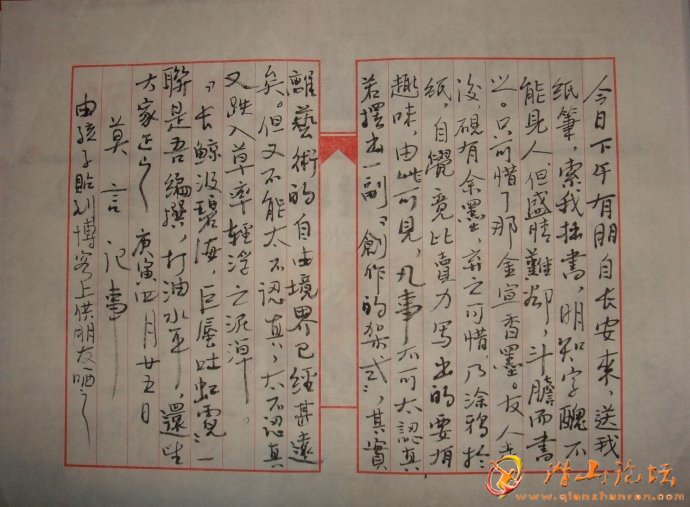 今日下午有朋自长安來，送我
纸筆，索我拙書，明知字醜不
能見人，但盛情難却，斗膽而書
之。只可惜了那金宣香墨。友人去
後，硯有余墨，弃之可惜，乃涂鸦於
纸，自覺竟比賣力写出的要有
趣味，由此可見，凡事不可太認真，
若摆出一副「創作的架式」，其實
離藝術的自由境界已經甚遠
矣。但又不能太不認真，太不認真
又跌入草率輕浮之泥潭。
「长鲸汲碧海，巨蜃吐虹霓」一
聯是吾編撰，打油水平，還望
大家正之 庚寅四月廿五日
莫言記事
由孩子貼到博客上供朋友一哂之
潜山论坛
www.qianshanren.com